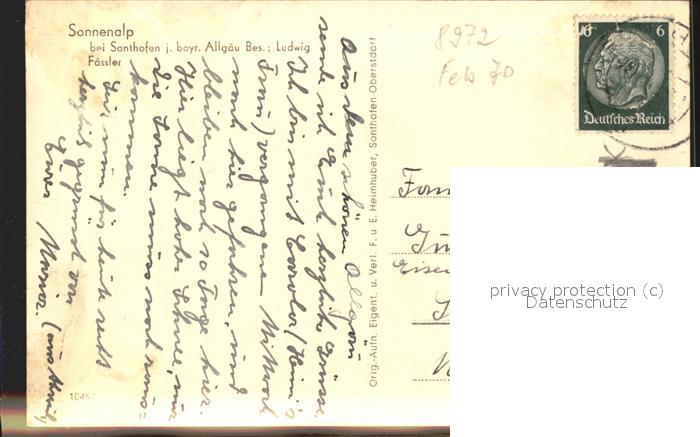 Sonnenalp
bei Sonthofen j. bayr. Allgäu Bes.; Ludwig
Fässler
8972
Feb 70
6 6
Deutsches Reich
Aus dem schönen Allgäu
sende ich Euch herzliche Grüsse
Ich bin mit
Frau) vergangenen Mittwoch
nach hier gefahren, und
bleiben noch 10 Tage hier.
Hier liegt hoher Schnee, nur
die Sonne muss noch
kommen.
nun für heute recht
herzlich gegrüsst von
Eurer
Orig.-Aufn. Eigent. u. Verl. F. u E. Heimhuber, Sonthofen-Oberstdorf
privacy protection (c)
Datenschutz